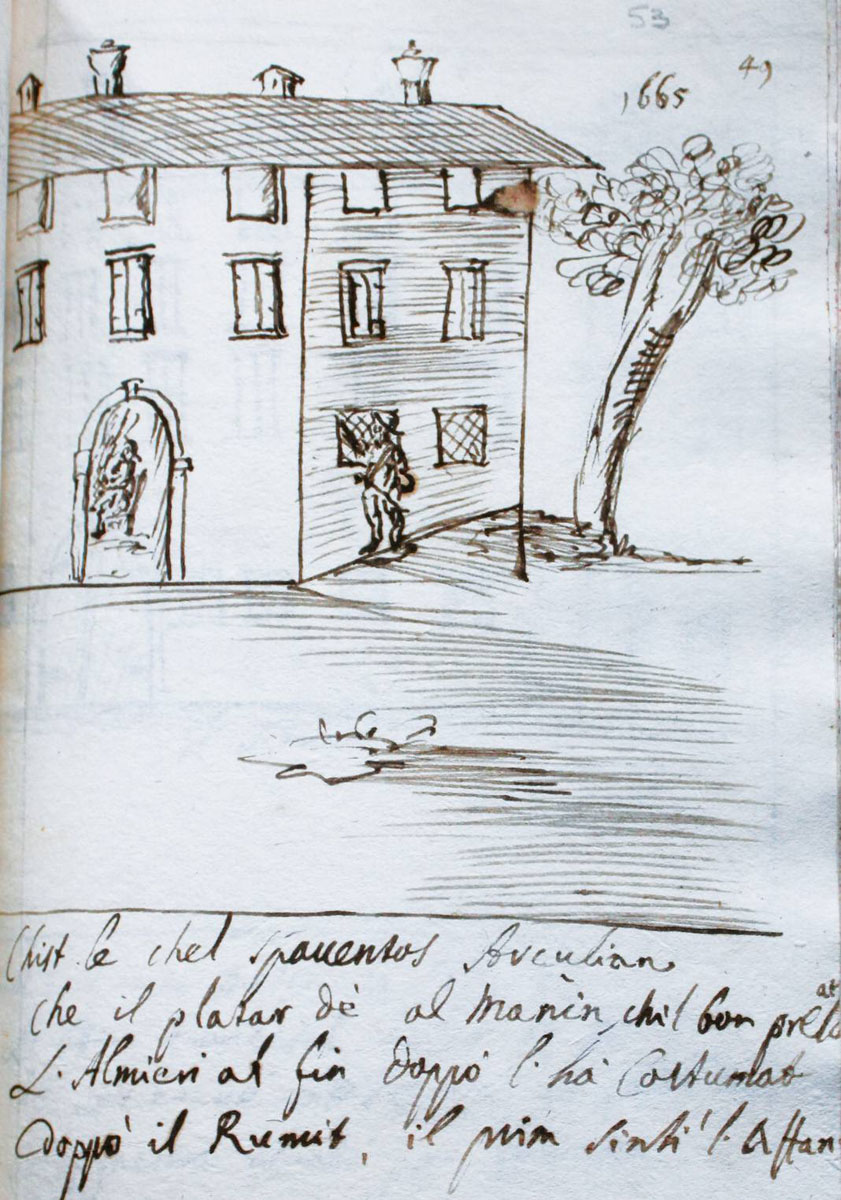 53
49
1665
Chist le chel spauentos Arculian
che il platar dè al Manin, chil bon prel at
L'Almieri al fin doppò l'hà Costumat
doppò il Rumit, il prim sintì l'Affan